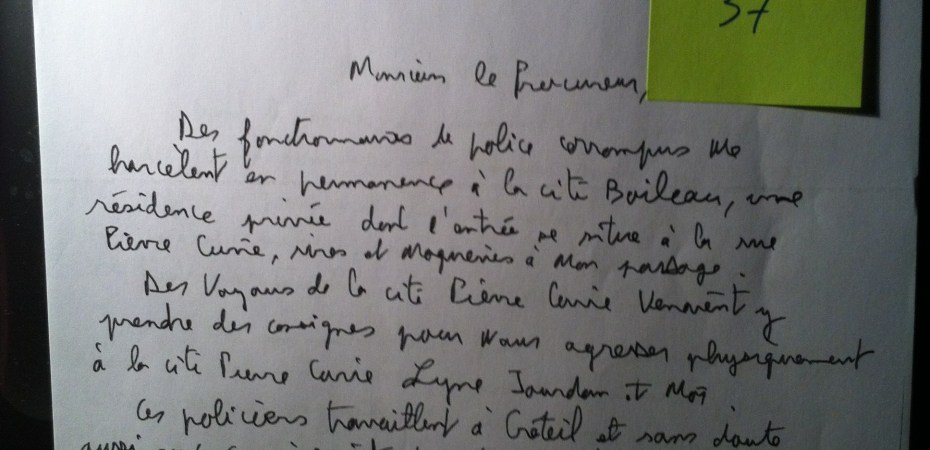 37
Monsieur le Procureur,
Des fonctionnaires de police corrompus me
harcèlent en permanence à la cité Boileau, une
résidence privée dont l'entrée se situe à la rue
Pierre Curie, rires et moqueries à mon passage.
Des voyous de la cité Pierre Curie viennent y
prendre des consignes pour nous agresser physiquement
à la cité Pierre Curie Lyne Jourdan et moi
Ces policiers travaillent à Créteil et sans doute
aussi